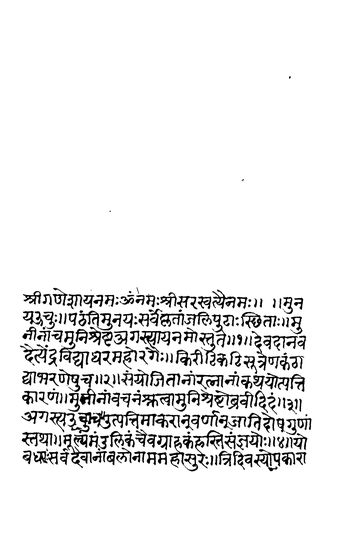 श्रीगणेशायनमःॐनमःश्रीसरस्वत्यैनमः॥ ॥मुन
यऊचुः॥पठंतिमुनयःसर्वेकृतांजलिपुटाःस्थिताः॥मु
नीनांचमुनिश्रेष्टअगस्त्यायनमोस्तुते॥१॥देवदानव
दैत्येंद्रविद्याधरमहोरगैः॥किरीटिकटिसूत्रेणकंठा
द्याभरणेपुच॥२॥संयोजितानांरत्नानांकथयोत्पत्ति
कारणं॥मुनीनांवचनंश्रुत्वामुनिश्रेष्टोब्रवीदिदं॥३॥
अगस्त्यउवाचउत्पत्तिमाकरान्वर्णान्जातिदोषगुणां
स्तथा॥मूल्यंमंडलिकंचैवग्राहकंहस्तिसंज्ञयोः॥४॥यो
वध्यःसर्वदेवानांबलोनाममहासुरः॥त्रिदिवस्योपकारा